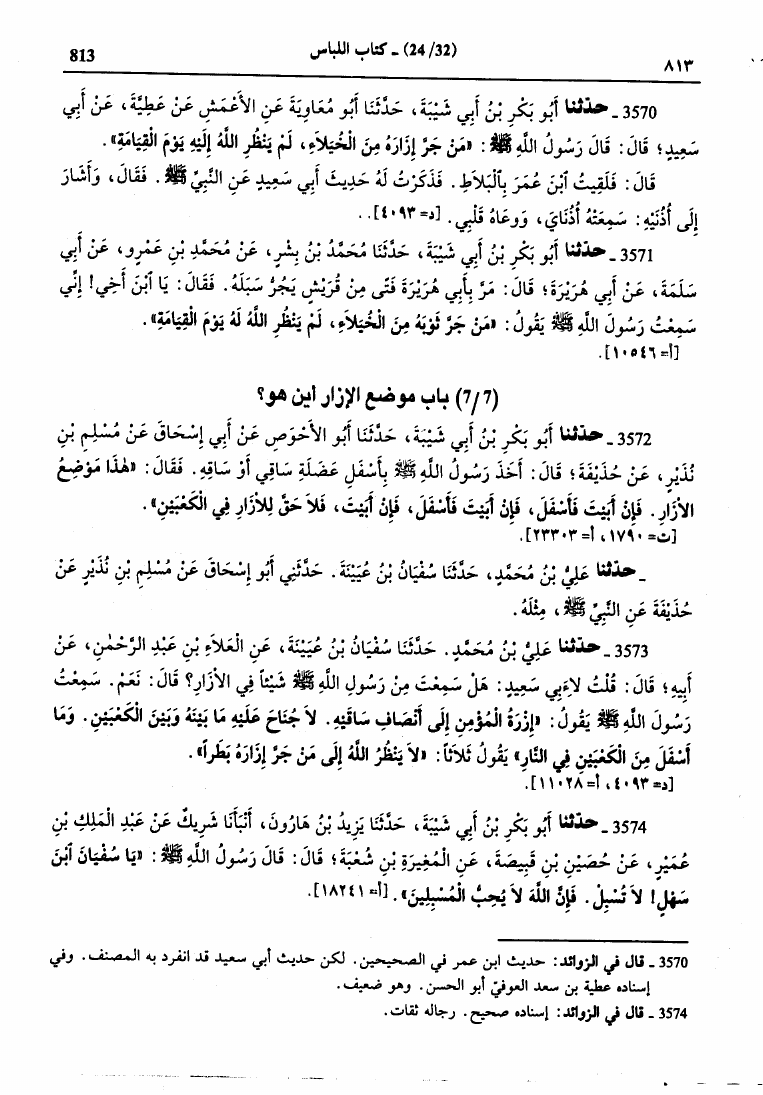 ٨١٣ (24/32) ـ كتاب اللباس 813
3570 ـ حدّثنا أَبُو بَكْرِ بْنُ أَبِي شَيْبَةَ، حَدَّثَنَا أَبُو مُعَاوِيَةَ عَنِ الأَعْمَشِ عَنْ عَطِيَّةَ، عَنْ أَبِي
سَعِيدٍ؛ قَالَ: قَالَ رَسُولُ اللَّهِ ﷺ: «مَنْ جَرَّ إِزَارَهُ مِنَ الْخُيَلاَءِ، لَمْ يَنْظُرِ اللَّهُ إِلَيْهِ يَوْمَ الْقِيَامَةِ».
قَالَ: فَلَقِيتُ ابْنَ عُمَرَ بِالْبَلاَطِ. فَذَكَرْتُ لَهُ حَدِيثَ أَبِي سَعِيدٍ عَنِ النَّبِيِّ ﷺ. فَقَالَ، وَأَشَارَ
إِلَى أُذُنَيْهِ: سَمِعَتْهُ أُذُنَايَ، وَوَعَاهُ قَلْبِي. [د=٤٠٩٣]. .
3571 ـ حدّثنا أَبُو بَكْرِ بْنُ أَبِي شَيْبَةَ، حَدَّثَنَا مُحَمَّدُ بْنُ بِشْرٍ، عَنْ مُحَمَّدِ بْنِ عَمْرٍو، عَنْ أَبِي
سَلَمَةَ، عَنْ أَبِي هُرَيْرَةَ؛ قَالَ: مَرَّ بِأَبِي هُرَيْرَةَ فَتًى مِنْ قُرَيْشٍ يَجُرُّ سَبَلَهُ. فَقَالَ: يَا ابْنَ أَخِي! إِنِّي
سَمِعْتُ رَسُولَ اللَّهِ ﷺ يَقُولُ: «مَنْ جَرَّ ثَوْبَهُ مِنَ الْخُيَلاَءِ، لَمْ يَنْظُرِ اللَّهُ لَهُ يَوْمَ الْقِيَامَةِ».
[أ=١٠٥٤٦].
(7/7) باب موضع الإزار أين هو؟
3572 ـ حدّثنا أَبُو بَكْرِ بْنُ أَبِي شَيْبَةَ، حَدَّثَنَا أَبُو الأَحْوَصِ عَنْ أَبِي إِسْحَاقَ عَنْ مُسْلِمِ بْنِ
نُذَيْرٍ، عَنْ حُذَيْفَةَ؛ قَالَ: أَخَذَ رَسُولُ اللَّهِ ﷺ بِأَسْفَلِ عَضَلَةِ سَاقِي أَوْ سَاقِهِ. فَقَالَ: «هٰذَا مَوْضِعُ
الأَزَارِ. فَإِنْ أَبَيْتَ فَأَسْفَلَ، فَإِنْ أَبَيْتَ فَأَسْفَلَ، فَإِنْ أَبَيْتَ، فَلاَ حَقَّ لِلأَزَارِ فِي الْكَعْبَيْنِ».
[ت=١٧٩٠، أ=٢٣٣٠٣].
ـ حدّثنا عَلِيُّ بْنُ مُحَمَّدٍ، حَدَّثَنَا سُفْيَانُ بْنُ عُيَيْنَةَ. حَدَّثَنِي أَبُو إِسْحَاقَ عَنْ مُسْلِمِ بْنِ نُذَيْرٍ عَنْ
حُذَيْفَةَ عَنِ النَّبِيِّ ﷺ، مِثْلَهُ.
3573 ـ حدّثنا عَلِيُّ بْنُ مُحَمَّدٍ. حَدَّثَنَا سُفْيَانُ بْنُ عُيَيْنَةَ، عَنِ الْعَلاَءِ بْنِ عَبْدِ الرَّحْمٰنِ، عَنْ
أَبِيهِ؛ قَالَ: قُلْتُ لأَبِي سَعِيدٍ: هَلْ سَمِعْتَ مِنْ رَسُولِ اللَّهِ ﷺ شَيْئاً فِي الأزَارِ؟ قَالَ: نَعَمْ. سَمِعْتُ
رَسُولَ اللَّهِ ﷺ يَقُولُ: «إِزْرَةُ الْمُؤْمِنِ إِلَى أَنْصَافِ سَاقَيْهِ. لاَ جُنَاحَ عَلَيْهِ مَا بَيْنَهُ وَبَيْنَ الْكَعْبَيْنِ. وَمَا
أَسْفَلَ مِنَ الْكَعْبَيْنِ فِي النَّارِ» يَقُولُ ثَلاَثاً: «لاَ يَنْظُرُ اللَّهُ إِلَى مَنْ جَرَّ إِزَارَهُ بَطَراً».
[د=٤٠٩٣، أ=١١٠٢٨].
3574 ـ حدّثنا أَبُو بَكْرِ بْنُ أَبِي شَيْبَةَ، حَدَّثَنَا يَزِيدُ بْنُ هَارُونَ، أَنْبَأَنَا شَرِيكٌ عَنْ عَبْدِ الْمَلِكِ بْنِ
عُمَيْرٍ، عَنْ حُصَيْنِ بْنِ قَبِيصَةَ، عَنِ الْمُغِيرَةِ بْنِ شُعْبَةَ؛ قَالَ: قَالَ رَسُولُ اللَّهِ ﷺ: «يَا سُفْيَانَ ابْنَ
سَهْلٍ! لاَ تُسْبِلْ. فَإِنَّ اللَّهَ لاَ يُحِبُّ الْمُسْبِلِينَ». [أ=١٨٢٤١].
3570 ـ قال في الزوائد: حديث ابن عمر في الصحيحين. لكن حديث أبي سعيد قد انفرد به المصنف. وفي
إسناده عطية بن سعد العوفيّ أبو الحسن. وهو ضعيف.
3574 ـ قال في الزوائد: إسناده صحيح. رجاله ثقات.